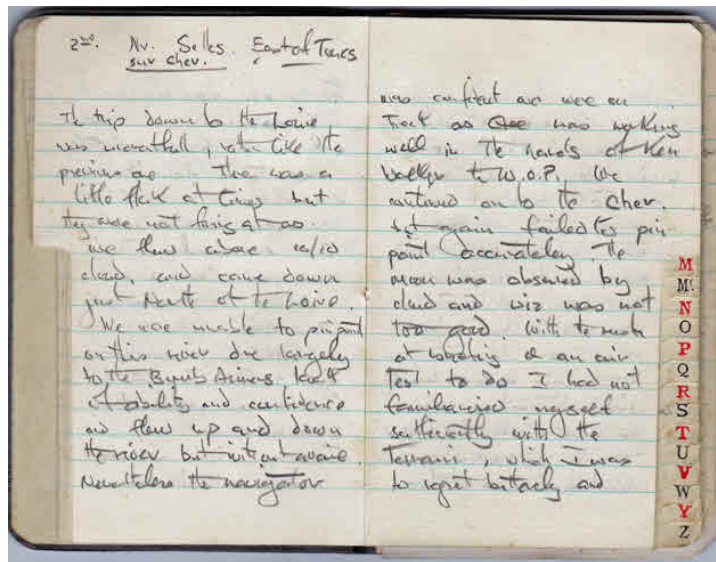 2ND. Nr. Selles East of Tours
sur cher.
The trip down to the Loire
was uneventfull, rather like the
previous one. There was a
little flak at times but
they were not firing at us.
we flew above 10/10
cloud, and came down
just North of the Loire.
We were unable to pinpoint
on this river due largely
to the Bomb Aimers lack
of ability and confidence
and flew up and down
the river but without avail.
Nevertheless the navigator
was confident we were on
Track as Gee was working
well in the hands of Ken
the W.O.P. We
continued on to the Cher.
but again failed to pin
point accurately. The
moon was obscured by
cloud and viz was not
too good. With the rush
of briefing & an air
Test to do I had not
familiarised myself
sufficiently with the
Terrain, which I was
to regret bitterly and
M
Mc
N
O
P
Q
R
S
T
U
V
W
Y
Z